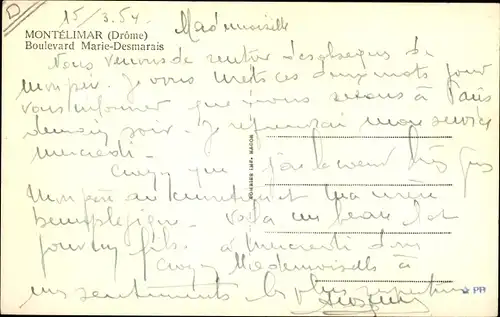 15/3.54.
Mademoiselle
MONTÉLIMAR (Drôme)
Boulevard Marie-Desmarais
Nous venons de rentrer des obsèques de
mon père. Je vous mets ces deux mots pour
vous informer que nous serons à Paris
demain soir. Je reprendrai mon service
mercredi.
Croyez que j'ai le coeur très gros
Mon père au cimetière et ma mère
hémiplégique. Voilà un beau lot
pour un fils. à mercredi donc
Croyez Mademoiselle à
mes sentiments les plus
PR